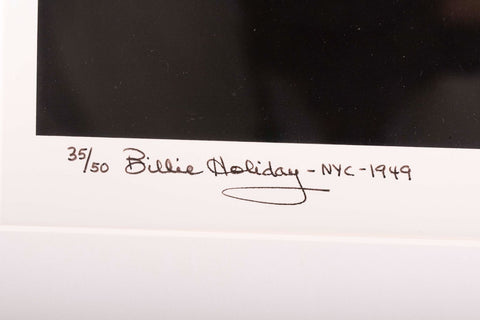 35/50 Billie Holiday - NYC - 1949